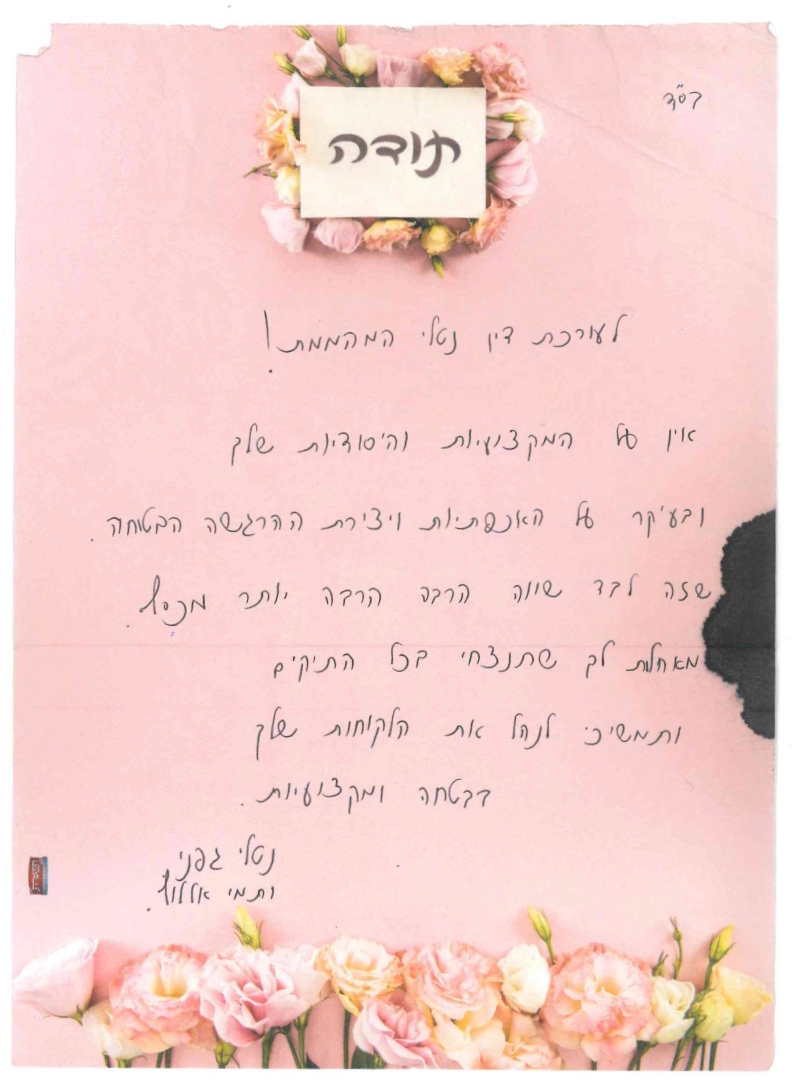 בס"ד
תודה
לעורכת דין נטלי המהממת!
אין על המקצועיות והיסודיות שלך
ובעיקר על האנפתיות ויצירת ההרגשה הבטוחה.
שזה לבד שווה הרבה הרבה יותר מכסף.
מאחלות לך שתנצחי בכל התיקים
ותמשיכי לנהל את הלקוחות שלך
בבטחה ומקצועיות.
נטלי גפני
ותמי אללוף.